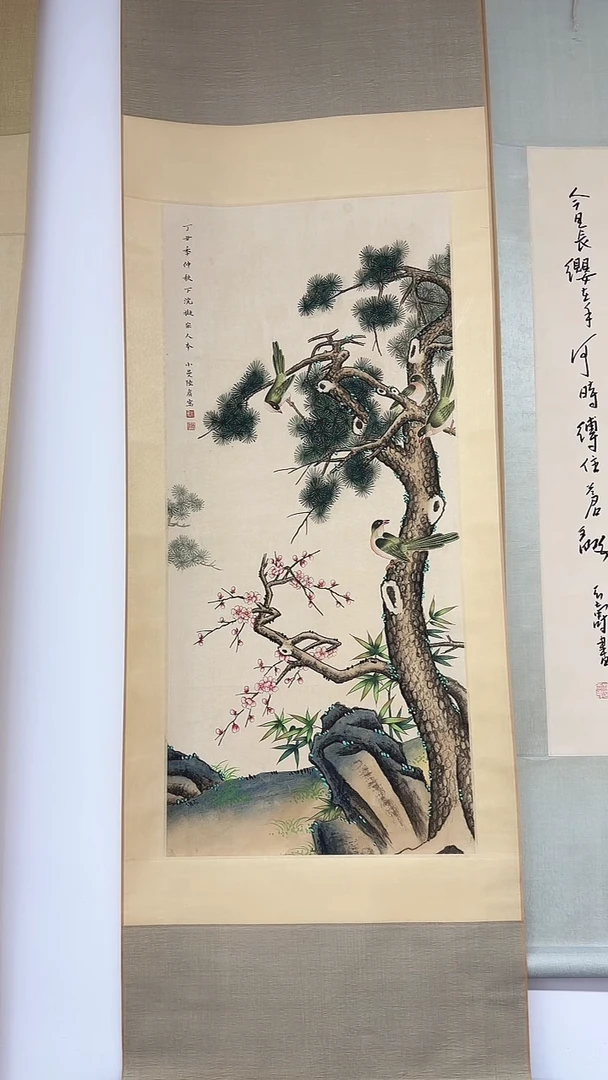 丁丑季仲秋下浣擬宋人本
小曼陸眉寫
今日長纓在手何時縛住蒼龍